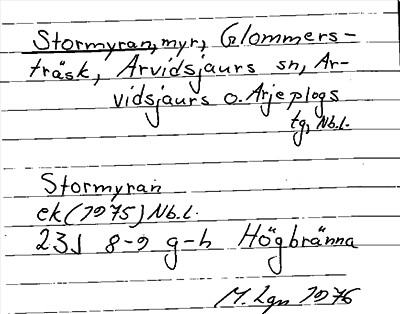 Stormyran, myr, Glommers-
träsk, Arvidsjaurs sn, Ar-
vidsjaurs o. Arjeplogs
tg, Nb.l.
Stormyran
ek (1975) Nb.l.
23J 8-9 g-h Högbränna
M. Lgn 1976